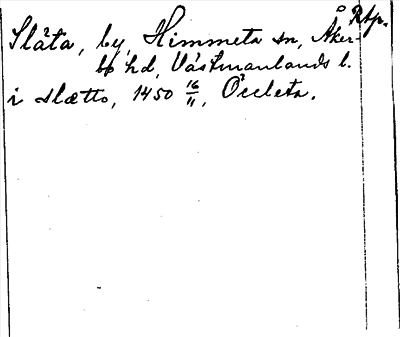 Slåta, by, Himmeta sn, Åker-
bo hd, Västmanlands l.
i slætto, 1450 16/11,
Rtp.